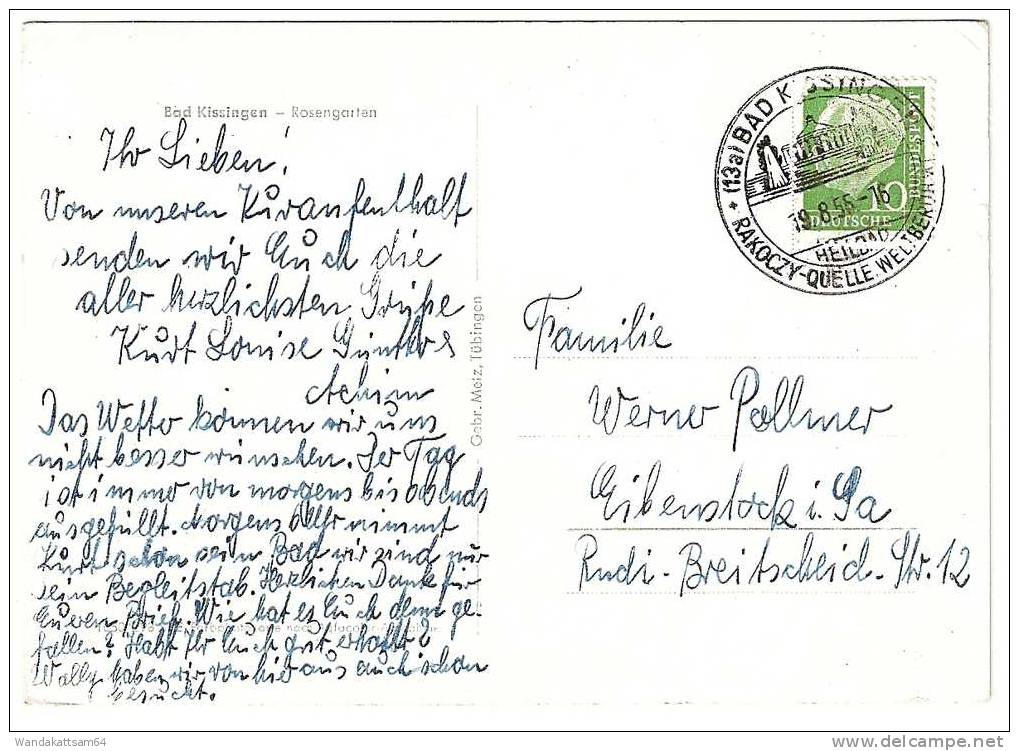 Bad Kissingen – Rosengarten
Ihr Lieben!
Von unseren Kuraufenthalt
senden wir Euch die
aller herzlichsten Grüße
Kurt Louise Günther &
Achim
Das Wetter können wir uns
nicht besser wünschen. Der Tag
ist immer von morgens bis abends
ausgefüllt. Morgens nimmt
Kurt schon sein Bad wir sind nur
sein Begleitstab. Herzlichen Dank für
Eueren Brief. Wie hat es Euch denn ge-
fallen? Habt Ihr Euch gut erholt?
Wally haben wir von hier aus auch schon
besucht.
Gebr. Metz, Tübingen
(13a) BAD KISSINGEN
19.8.55-16
HEILBAD
RAKOCZY-QUELLE WELTBERÜHMT
10
DEUTSCHE
BUNDESPOST
Familie
Werner Pollmer
Eibenstock i. Sa
Rudi-Breitscheid-Str. 12
Wandakattsam64
www.delcampe.net